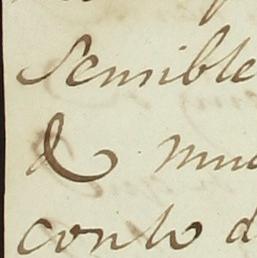 Sensible
& mu
conto d